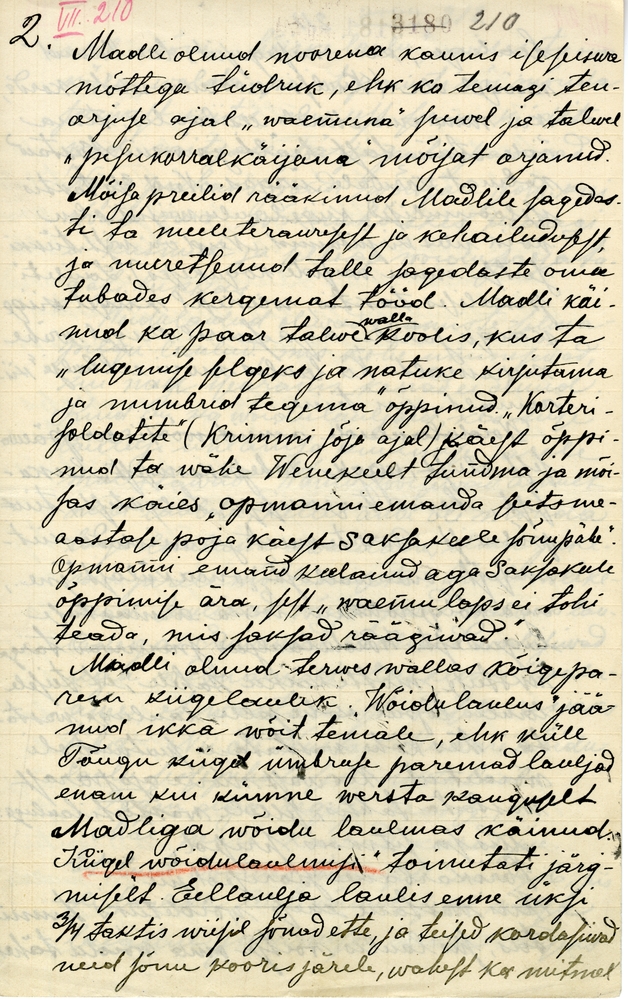 VII. 210
2. 3180 210
Madli olnud noorena kaunis iseseiswa
mõttega tüdruk, ehk ka temagi teu-
orjuse ajal „waemuna" suwel ja talwel
„pesukorralkäijana" mõisat orjanud.
Mõisa preilid rääkinud Madlile sagedas-
ti ta meeleterawusest ja kehailudusest,
ja muretsenud talle sagedaste oma
tubades kergemat tööd. Madli käi-
nud ka paar talwe walla koolis, kus ta
„lugemise selgeks ja natuke kirjutama
ja numbrid tegema" õppinud. „Korteri-
soldatete" (Krimmi sõja ajal) käest õppi-
nud ta wähe Wenekeelt tundma ja mõi-
sas käies „opmanni emanda seitsme-
aastase poja käest Saksakeele sõnu pähe".
Opmanni emand keelanud aga Saksakeele
õppimise ära, sest „waemu laps ei tohi
teada, mis saksad räägiwad."
Madli olnud terwes wallas kõigepa-
rem kiigelaulik. „Wõidulaulus" jää-
nud ikka wõit temale, ehk küll
Tõugu kiigel ümbruse paremad lauljad
enam kui kümne wersta kauguselt
Madliga wõidu laulmas käinud.
„Kiigel wõidulaulmisi" toimetati järg-
miselt. Eellaulja laulis enne üksi
3/4 taktis wiisil sõnad ette, ja teised kordasiwad
neid sõnu kooris järele, wahest ka mitmel